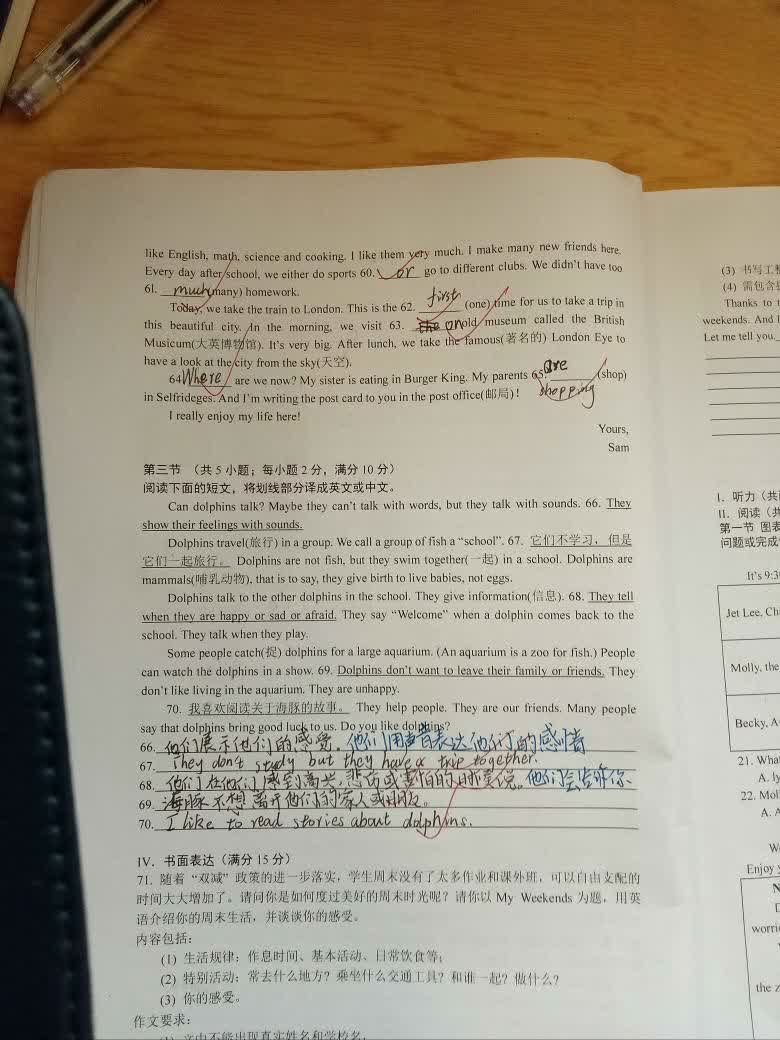 like English, math, science and cooking. I like them very much. I make many new friends here.
Every day after school, we either do sports 60. or go to different clubs. We didn't have too
61. much (many) homework.
Today, we take the train to London. This is the 62. first (one) time for us to take a trip in
this beautiful city. In the morning, we visit 63. an old museum called the British
Musicum(大英博物馆). It's very big. After lunch, we take the famous(著名的) London Eye to
have a look at the city from the sky(天空).
64. Where are we now? My sister is eating in Burger King. My parents 65. are shopping (shop)
in Selfrideges. And I'm writing the post card to you in the post office(邮局)!
I really enjoy my life here!
Yours,
Sam
第三节 （共 5 小题；每小题 2 分，满分 10 分）
阅读下面的短文，将划线部分译成英文或中文。
Can dolphins talk? Maybe they can't talk with words, but they talk with sounds. 66. They
show their feelings with sounds.
Dolphins travel(旅行) in a group. We call a group of fish a “school”. 67. 它们不学习，但是
它们一起旅行。 Dolphins are not fish, but they swim together(一起) in a school. Dolphins are
mammals(哺乳动物), that is to say, they give birth to live babies, not eggs.
Dolphins talk to the other dolphins in the school. They give information(信息). 68. They tell
when they are happy or sad or afraid. They say “Welcome” when a dolphin comes back to the
school. They talk when they play.
Some people catch(捉) dolphins for a large aquarium. (An aquarium is a zoo for fish.) People
can watch the dolphins in a show. 69. Dolphins don't want to leave their family or friends. They
don't like living in the aquarium. They are unhappy.
70. 我喜欢阅读关于海豚的故事。 They help people. They are our friends. Many people
say that dolphins bring good luck to us. Do you like dolphins?
66. 他们展示他们的感觉，他们用声音表达他们的感情
67. They don't study but they have a trip together.
68. 他们在他们感到高兴，悲伤或害怕的时候说。他们会告诉你
69. 海豚不想离开他们的家人或朋友。
70. I like to read stories about dolphins.
IV. 书面表达（满分 15 分）
71. 随着“双减”政策的进一步落实，学生周末没有了太多作业和课外班，可以自由支配的
时间大大增加了。请问你是如何度过美好的周末时光呢？请你以 My Weekends 为题，用英
语介绍你的周末生活，并谈谈你的感受。
内容包括：
(1) 生活规律：作息时间、基本活动、日常饮食等；
(2) 特别活动：常去什么地方？乘坐什么交通工具？和谁一起？做什么？
(3) 你的感受。
作文要求：
(1) 文中不能出现真实姓名和学校名，
(3) 书写工整
(4) 需包含
Thanks to t
weekends. And I
Let me tell you.
I. 听力（共
II. 阅读（共
第一节 图表
问题或完成
It's 9:3
Jet Lee, Ch
Molly, the
Becky, A
21. What
A. ly
22. Mol
A. A
Enjoy
worri
the z